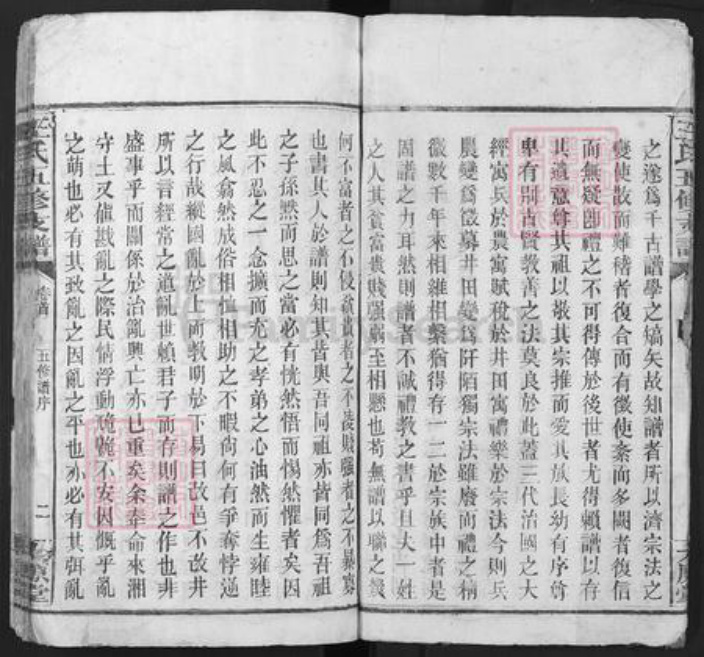 之遂爲千古譜學之蒿矢故知譜者所以濟宗法之
變使故而難稽者復合而有徵使紊而多闕者復信
而無疑卽禮之不可得傳於後世者尤得賴譜以存
其遺意尊其祖以敬其宗推而愛其族長幼有序尊
卑有別古賢教善之法莫良於此蓋三代治國之大
經寓兵於農寓賦稅於井田寓禮樂於宗法今則兵
農變爲徵募井田變爲阡陌獨宗法雖廢而禮之精
微數千年來相維相繫猶得有一二於宗族中者是
固譜之力耳然則譜者不誠禮教之書乎且夫一姓
之人其貧富貴賤强弱至相懸也苟無譜以聯之幾
何不富者之不侵貧貴者之不凌賤强者之不暴寡
也書其人於譜則知其皆與吾同祖亦皆同爲吾祖
之子孫默而思之當必有恍然悟而惕然懼者矣因
此不忍之一念擴而充之孝弟之心油然而生雍睦
之風翕然成俗相恤相助之不暇尚何有爭奪悖逆
之行哉縱國亂於上而教明於下易曰改邑不改井
所以言經常之道亂世賴君子而存則譜之作也非
盛事乎而關係於治亂興亡亦已重矣余奉命來湘
守土又値戡亂之際民情浮動 不安因慨乎亂
之萌也必有其致亂之因亂之平也亦必有其弭亂
王氏五修支譜
卷首
五修譜序
二